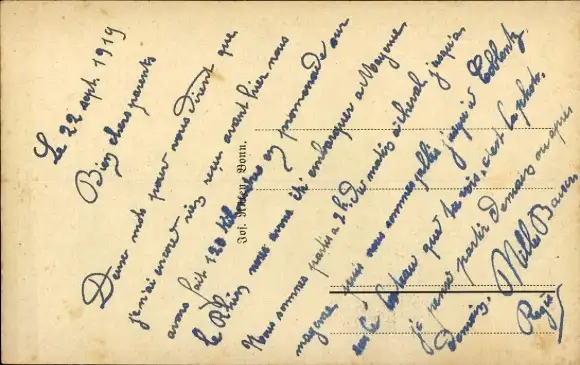 Le 22 sept. 1919
Bien chers parents
Deux mots pour vous dirent que
j'en ai encore rien reçu avant hier nous
avons fait 120 kilomètres en promenade sur
le Rhin nous avons été embarquer a Mayence
Nous sommes partis a 2h. du matin à cheval jusqu'a
mayence puis nous sommes allée jusqu'à Coblentz
sur le bateau que tu vois, c'est la photo.
je pense partir demain ou après
demain. Mille Baisers
Jos. Bonn.